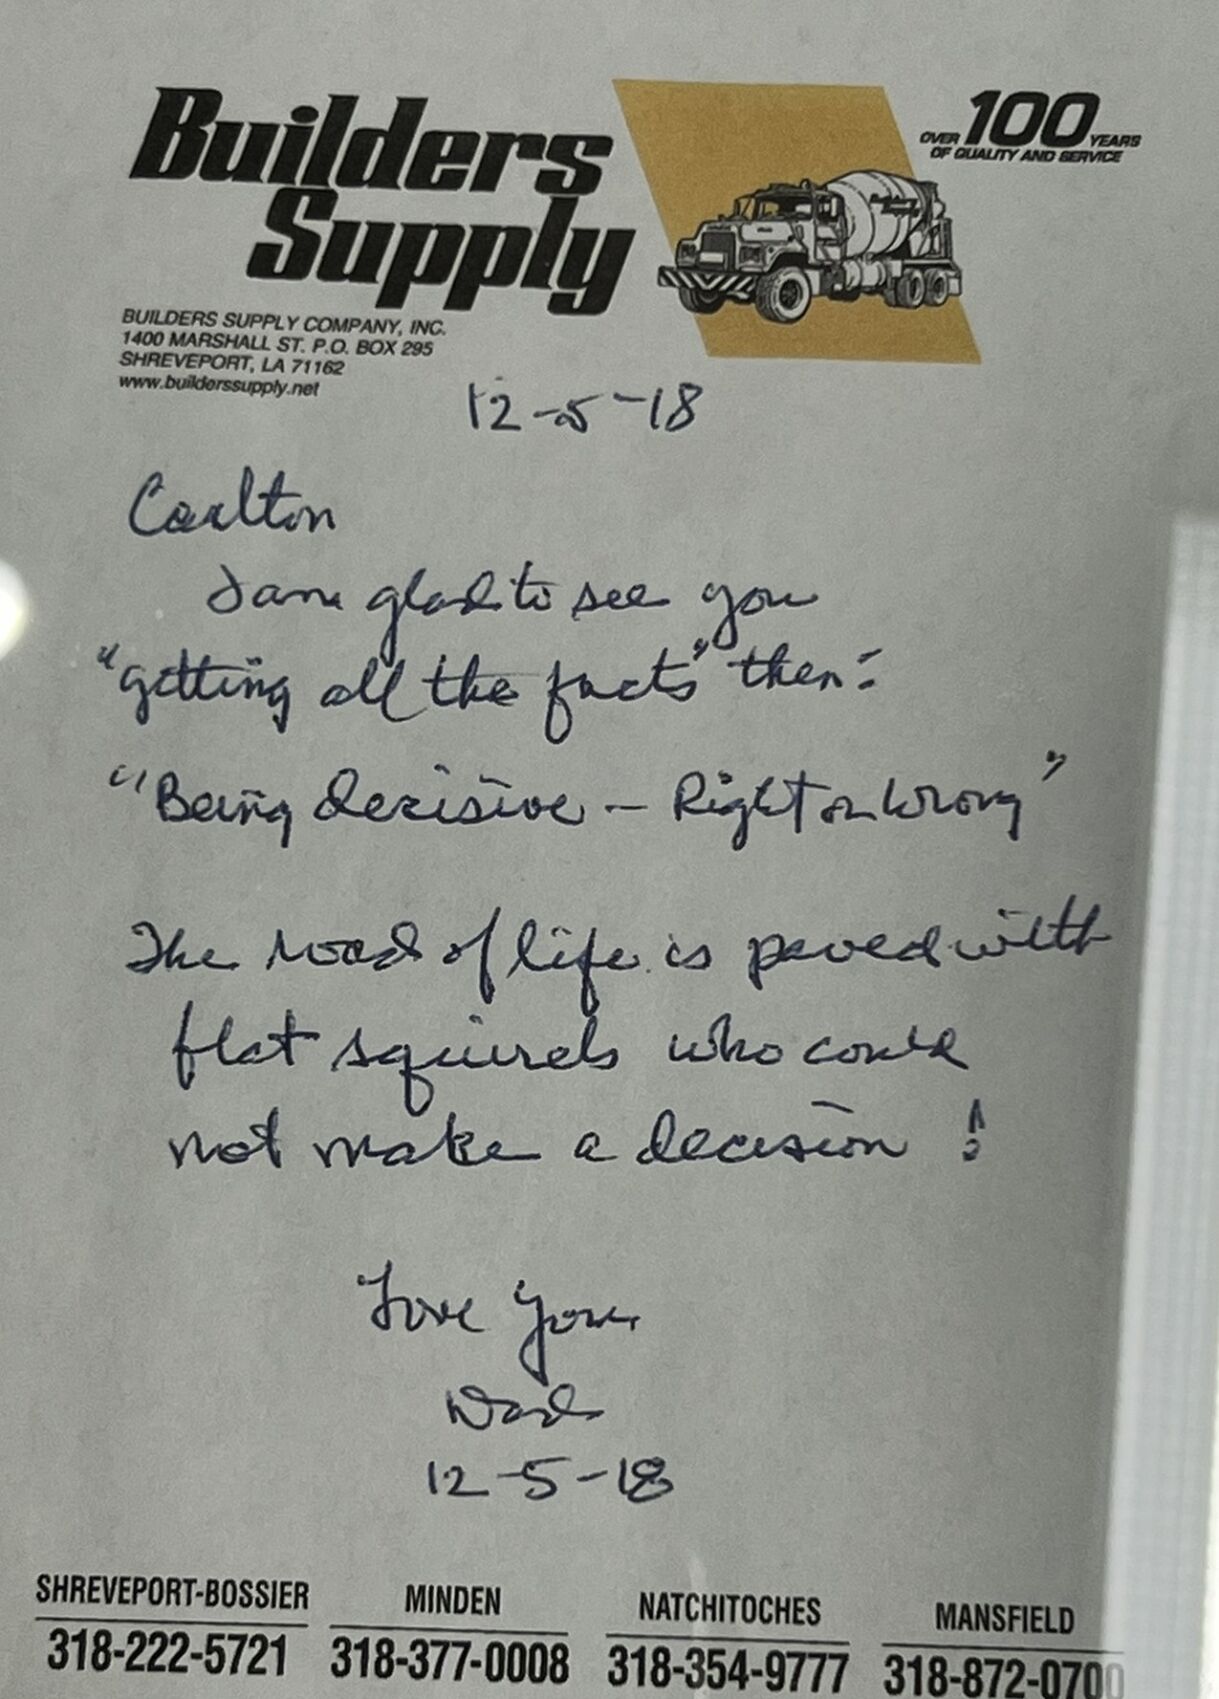 Builders
Supply
OVER 100 YEARS
OF QUALITY AND SERVICE
BUILDERS SUPPLY COMPANY, INC.
1400 MARSHALL ST. P.O. BOX 295
SHREVEPORT, LA 71162
www.builderssupply.net
12-5-18
Carlton
I am glad to see you
"getting all the facts" then:
"Being decisive - Right or Wrong"
The road of life is paved with
flat squirrels who could
not make a decision!
Love you
Dad
12-5-18
SHREVEPORT-BOSSIER MINDEN NATCHITOCHES MANSFIELD
318-222-5721 318-377-0008 318-354-9777 318-872-0700